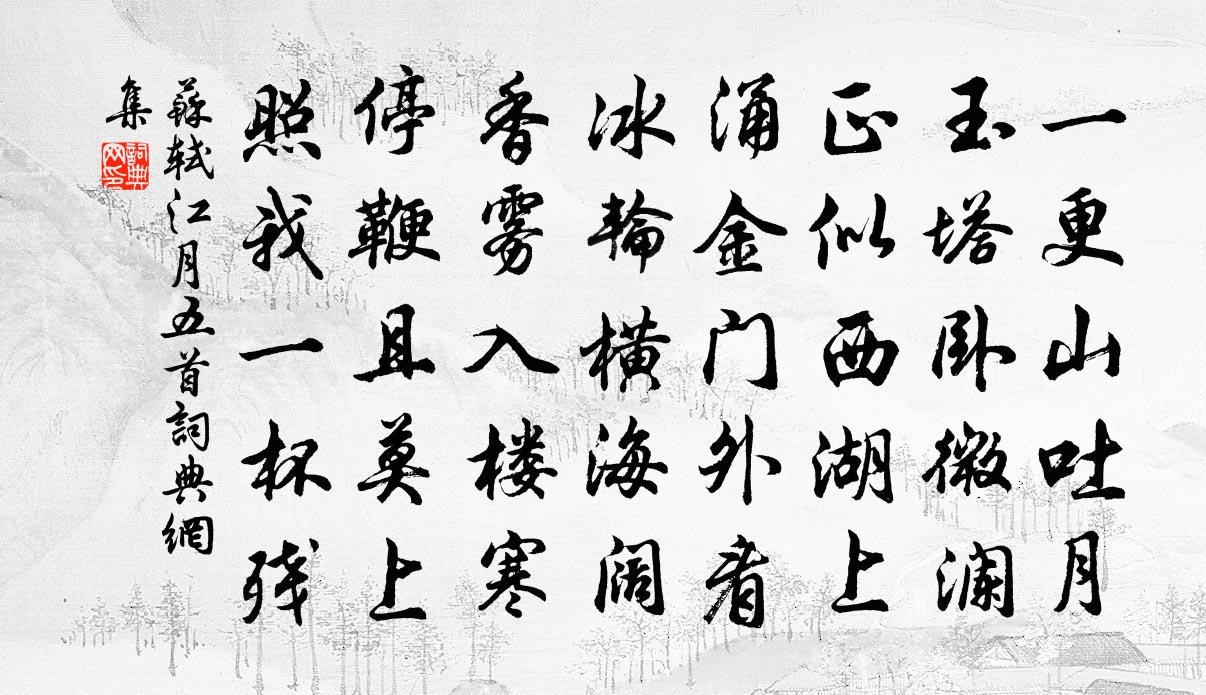 一更山吐月
玉塔卧微澜
正似西湖上
涌金门外看
冰轮横海阔
香雾入楼寒
停鞭且莫上
照我一杯残
蘇轼江月五首詞典網
集
詞典
网印